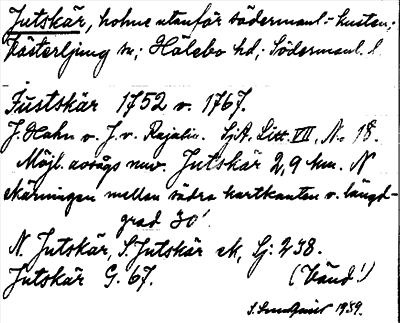 Jutskär, holme utanför södermanl.-kusten;
Västerljung sn; Hölebo hd; Södermanl. l.
Justskär 1752 o. 1767.
J. Hahn o. J. v. Rajalin. SjA. Litt. VII, N. 18.
Möjl. avsågs nuv. Jutskär 2,9 km. N
skärningen mellan södra kartkanten o. längd-
grad 30'.
N. Jutskär, S. Jutskär ek, Sj. 238.
Jutskär G. 67. (Vänd!)
1939.